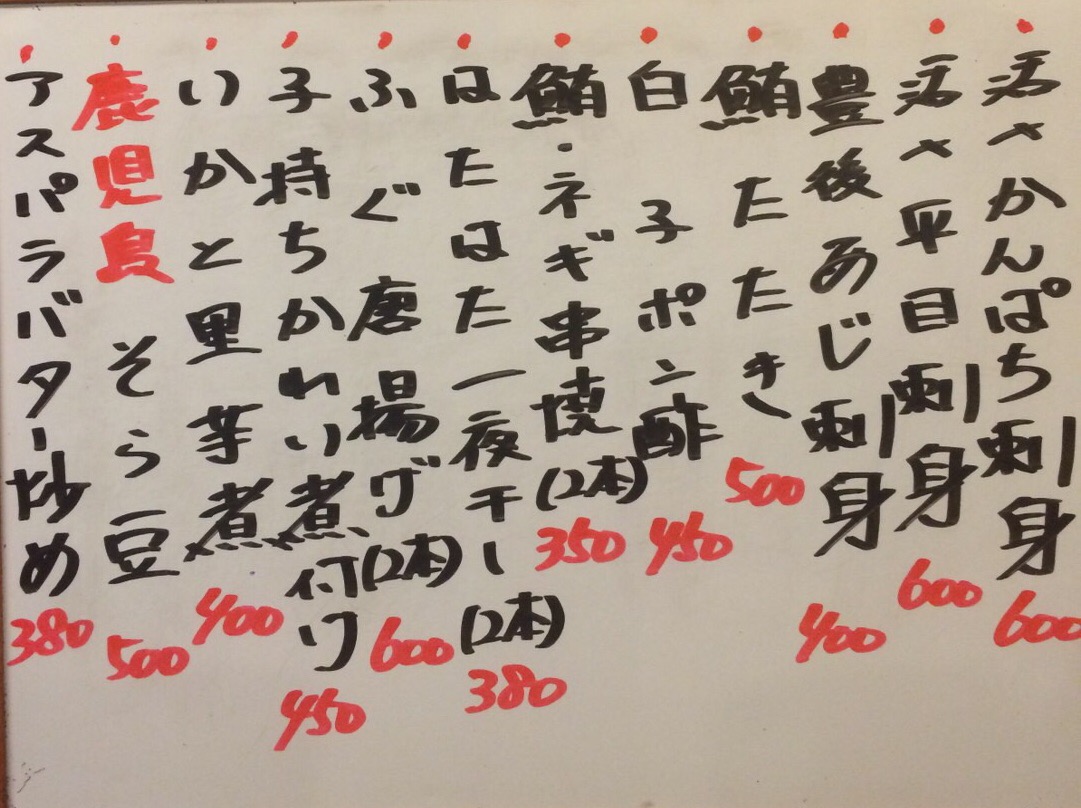 ・活〆かんぱち刺身 600
・活〆平目刺身 600
・豊後あじ刺身 400
・鮪たたき 500
・白子ポン酢 450
・鮪・ネギ串焼(2本) 350
・はたはた一夜干し(2本) 380
・ふぐ唐揚げ(2本) 600
・子持ちかれい煮付け 450
・いかと里芋煮 400
・鹿児島そら豆 500
・アスパラバター炒め 380